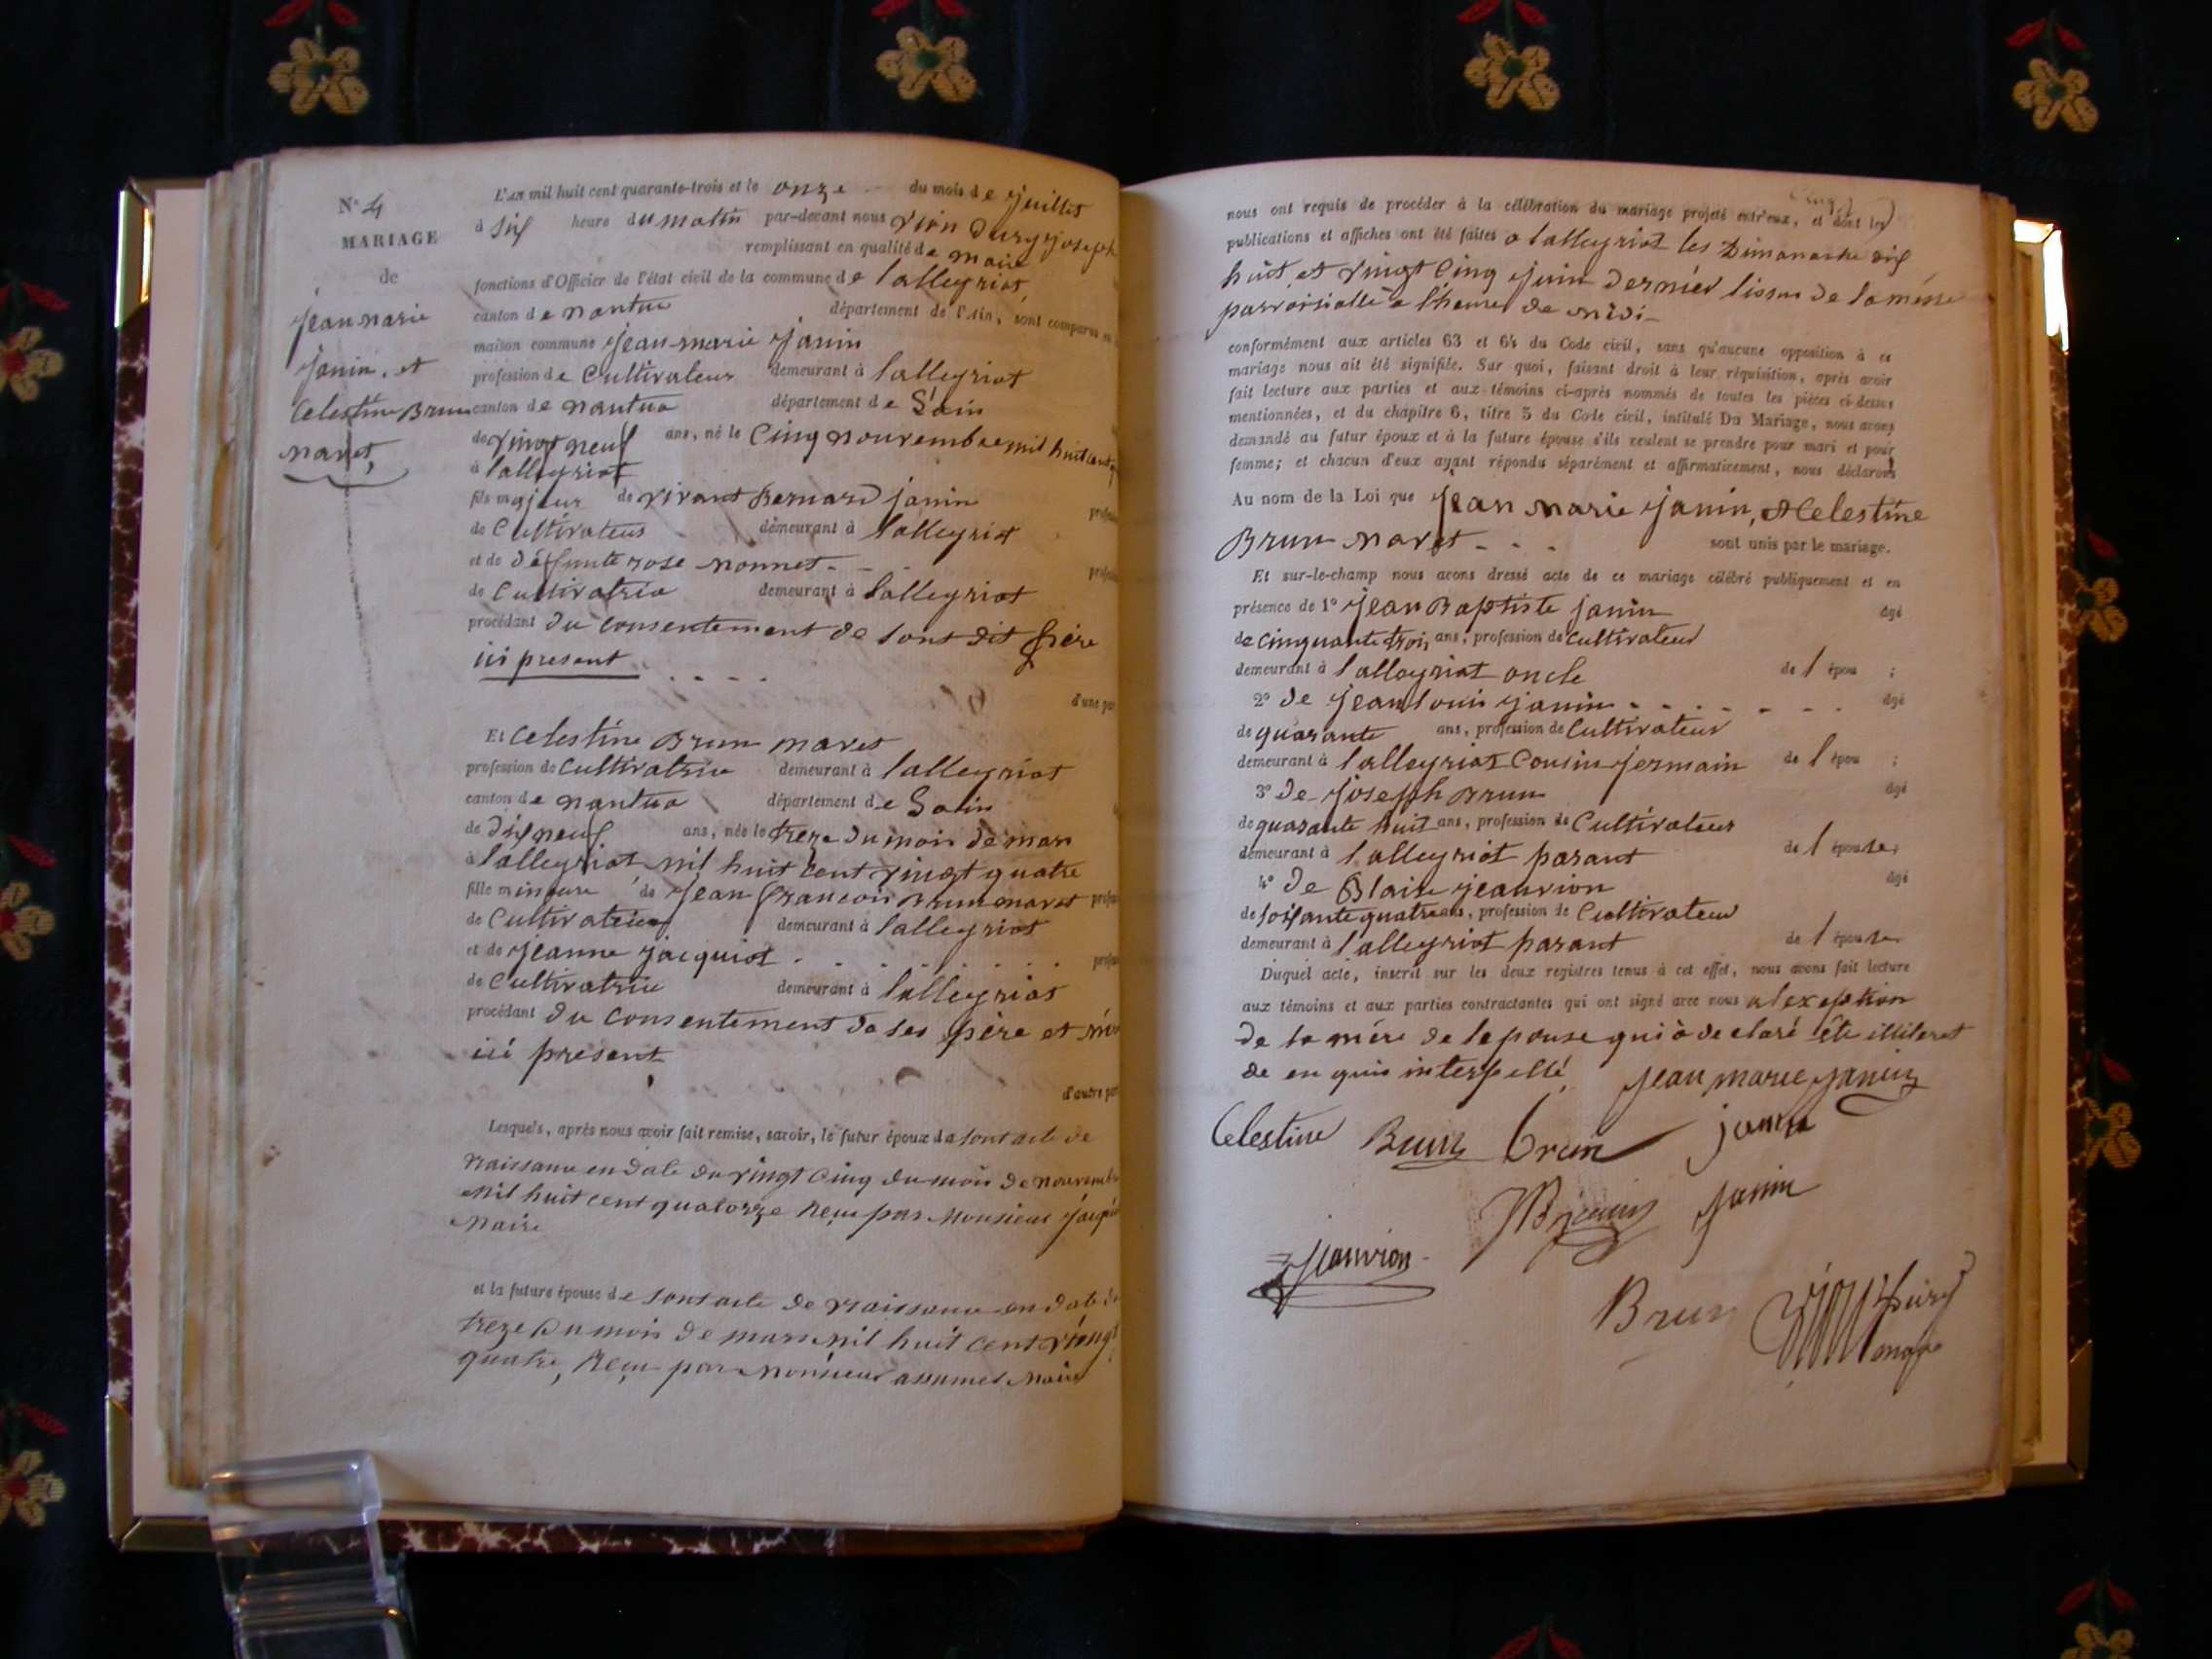 N° 4
MARIAGE
de
jean marie
janin, et
Celestine Brun
maret,
L'an mil huit cent quarante-trois et le onze du mois de juillet
à six heure du matin par-devant nous
remplissant en qualité de maire
fonctions d'Officier de l'état civil de la commune de lalleyriat,
canton de nantua département de l'Ain, sont comparus en
maison commune jean marie janin
profession de Cultivateur demeurant à lalleyriat
canton de nantua département de L'ain
de vingt neuf ans, né le Cinq nouvembre mil huit cent
à lalleyriat
fils majeur de vivant Bernard janin
de Cultivateur demeurant à lalleyriat
et de défunte rose monnet
de Cultivatrice demeurant à lalleyriat
procédant du consentement de sont dit père
ici present
d'une par
Et Celestine Brun maret
profession de Cultivatrice demeurant à lalleyriat
canton de nantua département de Lain
de dixneuf ans, née le treze du mois de mars
à lalleyriat mil huit cent vingt quatre
fille mineure de jean françois Brun maret
de Cultivateur demeurant à lalleyriat
et de jeanne jacquiot
de Cultivatrice demeurant à lalleyriat
procédant du consentement de ses père et
ici present
d'autre par
Lesquels, après nous avoir fait remise, savoir, le futur époux de sont acte de
naissance en date du vingt Cinq du mois de nouvembre
mil huit cent quatorze Reçu par Monsieur
Maire
et la future épouse de sont acte de naissance en date du
treze du mois de mars mil huit cent vingt
quatre, Reçu par Monsieur assumel Maire
nous ont requis de procéder à la célébration du mariage projeté entr'eux, et dont les
publications et affiches ont été faites a lalleyriat les Dimanche dix
huit et vingt Cinq juin dernier lissus de la messe
parroisialle a lheure de midi
conformément aux articles 63 et 64 du Code civil, sans qu'aucune opposition à ce
mariage nous ait été signifiée. Sur quoi, faisant droit à leur réquisition, après avoir
fait lecture aux parties et aux témoins ci-après nommés de toutes les pièces ci-dessus
mentionnées, et du chapitre 6, titre 5 du Code civil, intitulé Du Mariage, nous avons
demandé au futur époux et à la future épouse s'ils veulent se prendre pour mari et pour
femme; et chacun d'eux ayant répondu séparément et affirmativement, nous déclarons
Au nom de la Loi que jean marie janin, & Celestine
Brun maret sont unis par le mariage.
Et sur-le-champ nous avons dressé acte de ce mariage célébré publiquement et en
présence de 1° jean Baptiste janin âgé
de cinquante trois ans, profession de Cultivateur
demeurant à lalleyriat oncle de l épou ;
2° de jean louis janin âgé
de quarante ans, profession de Cultivateur
demeurant à lalleyriat Cousin germain de l épou ;
3° de joseph Brun âgé
de quarante huit ans, profession de Cultivateur
demeurant à lalleyriat parant de l épouse;
4° de Blaise jeanvion âgé
de soixante quatre ans, profession de Cultivateur
demeurant à lalleyriat parant de l épouse
Duquel acte, inscrit sur les deux registres tenus à cet effet, nous avons fait lecture
aux témoins et aux parties contractantes qui ont signé avec nous a lexeption
de la mère de lepouse qui à declaré être
de en quis interpellé. jean marie janin
Celestine Brun brun janin
janin
jeanvion
Brun